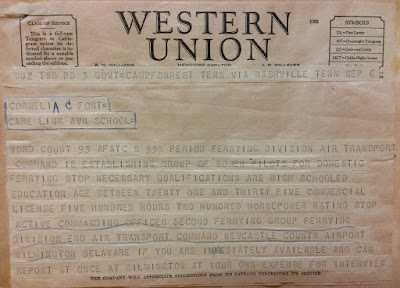 CLASS OF SERVICE
This is a full-rate
Telegram or Cable-
gram unless its de-
ferred character is in-
dicated by a suitable
symbol above or pre-
ceding the address.
WESTERN
UNION
1201
SYMBOLS
DL = Day Letter
NT = Overnight Telegram
LC = Deferred Cable
NLT = Cable Night Letter
A. N. WILLIAMS
J. C. WILLEVER
NU2 TWS PD 3 GOVT=CAMPFORREST TENN VIA NASHVILLE TENN SEP 6
CORNELIA C FORT=
CARE LINK AVN SCHOOL=
WORD COUNT 95 AFATC B 953 PERIOD FERRYING DIVISION AIR TRANSPORT
COMMAND IS ESTABLISHING GROUP OF WOMEN PILOTS FOR DOMESTIC
FERRYING STOP NECESSARY QUALIFICATIONS ARE HIGH SCHOOLED
EDUCATION AGE BETWEEN TWENTY ONE AND THIRTY FIVE COMMERCIAL
LICENSE FIVE HUNDRED HOURS TWO HUNDRED HORSEPOWER RATING STOP
ACTIVE COMMANDING OFFICER SECOND FERRYING GROUP FERRYING
DIVISION END AIR TRANSPORT COMMAND NEWCASTLE COUNTY AIRPORT
WILMINGTON DELAWARE IF YOU ARE IMMEDIATELY AVAILABLE AND CAN
REPORT AT ONCE AT WILMINGTON AT YOUR OWN EXPENSE FOR INTERVIEW
THE COMPANY WILL APPRECIATE SUGGESTIONS FROM ITS PATRONS CONCERNING ITS SERVICE